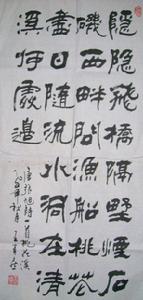 隱隐飛橋隔野煙石
磯西畔問漁船桃花
盡日隨流水洞在清
溪何處邊
唐張旭詩一首桃花溪